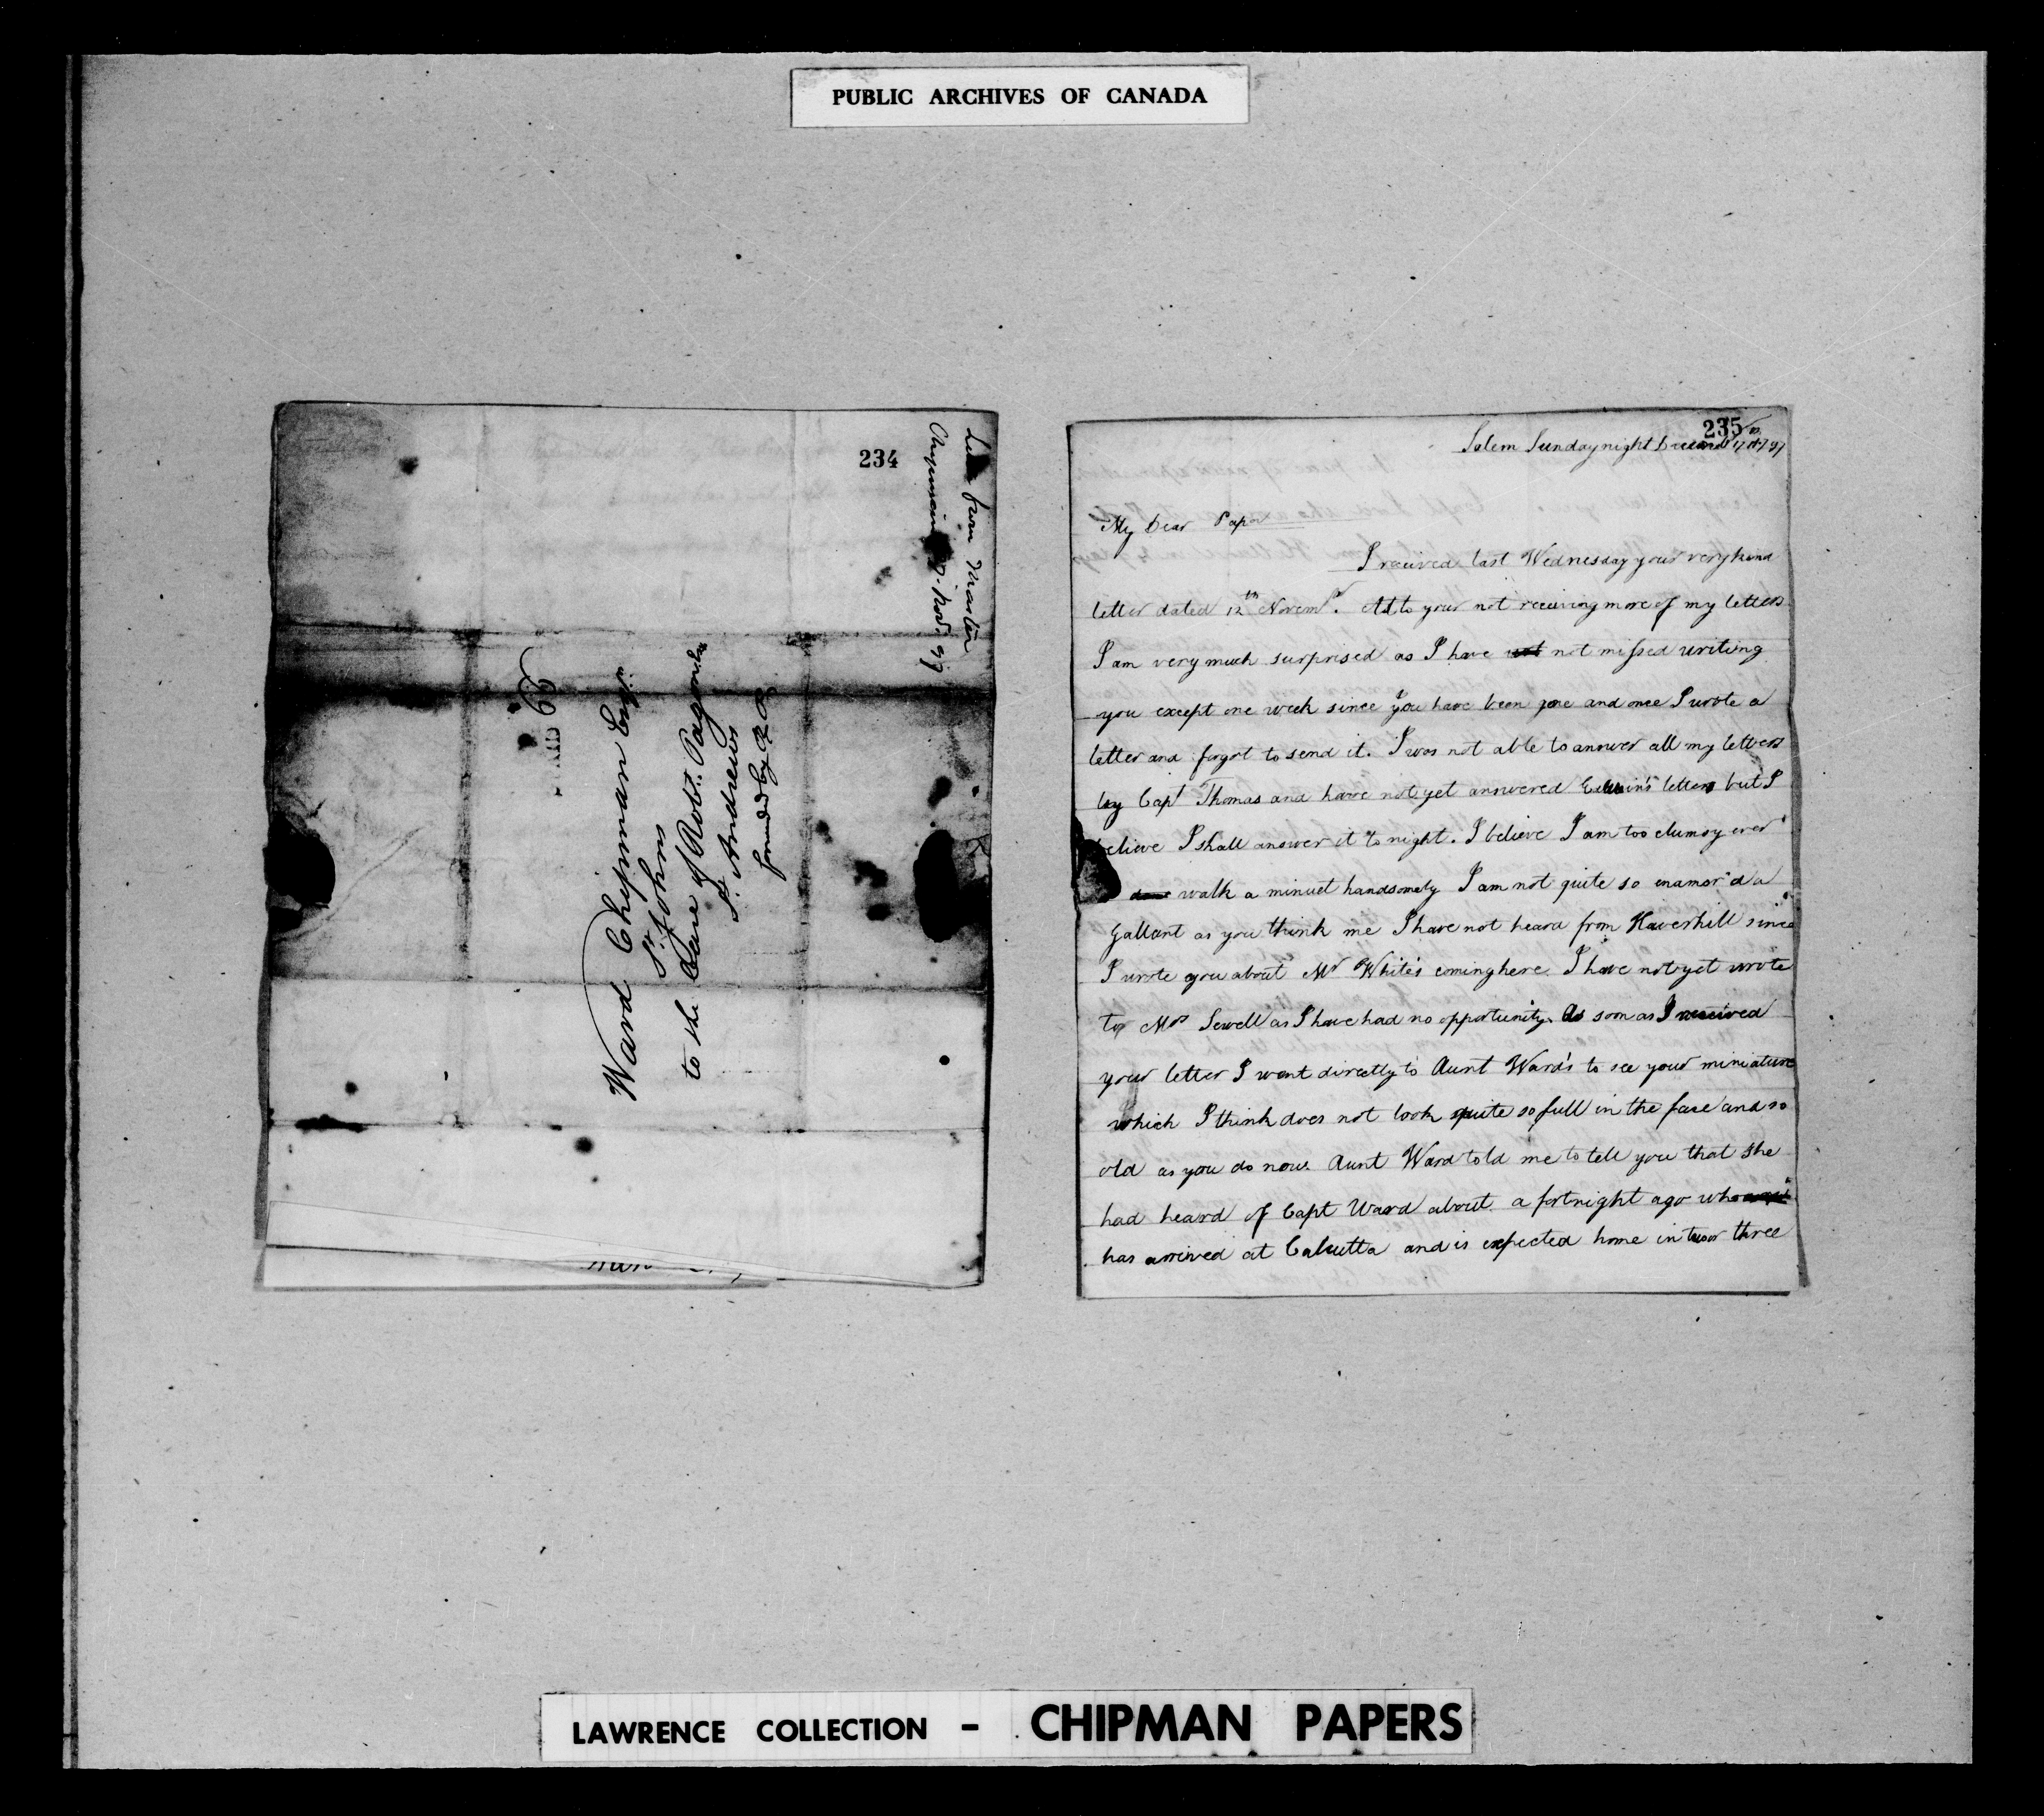 PUBLIC ARCHIVES OF CANADA
234
from Master
Chipman Nov. 97
Ward Chipman Esqr.
St. Johns
to the Care of Robt. Pagan
St. Andrews
235
Salem Sunday night 17 1797
My Dear Papa
I received last Wednesday your very kind
letter dated 12th Novemr. As to your not receiving more of my letters
I am very much surprised as I have not missed writing
you except one week since you have been gone and once I wrote a
letter and forgot to send it. I was not able to answer all my letters
by Capt Thomas and have not yet answered letters but I
believe I shall answer it to night. I believe I am too clumsy ever
walk a minuet handsomely I am not quite so enamor'd a
Gallant as you think me I have not heard from Haverhill since
I wrote you about Mr White's coming here I have not yet wrote
to Mrs Sewell as I have had no opportunity. As soon as I received
your letter I went directly to Aunt Ward's to see your miniature
which I think does not look quite so full in the face and so
old as you do now. Aunt Ward told me to tell you that she
had heard of Capt Ward about a fortnight ago who
has arrived at Calcutta and is expected home in two or three
LAWRENCE COLLECTION - CHIPMAN PAPERS